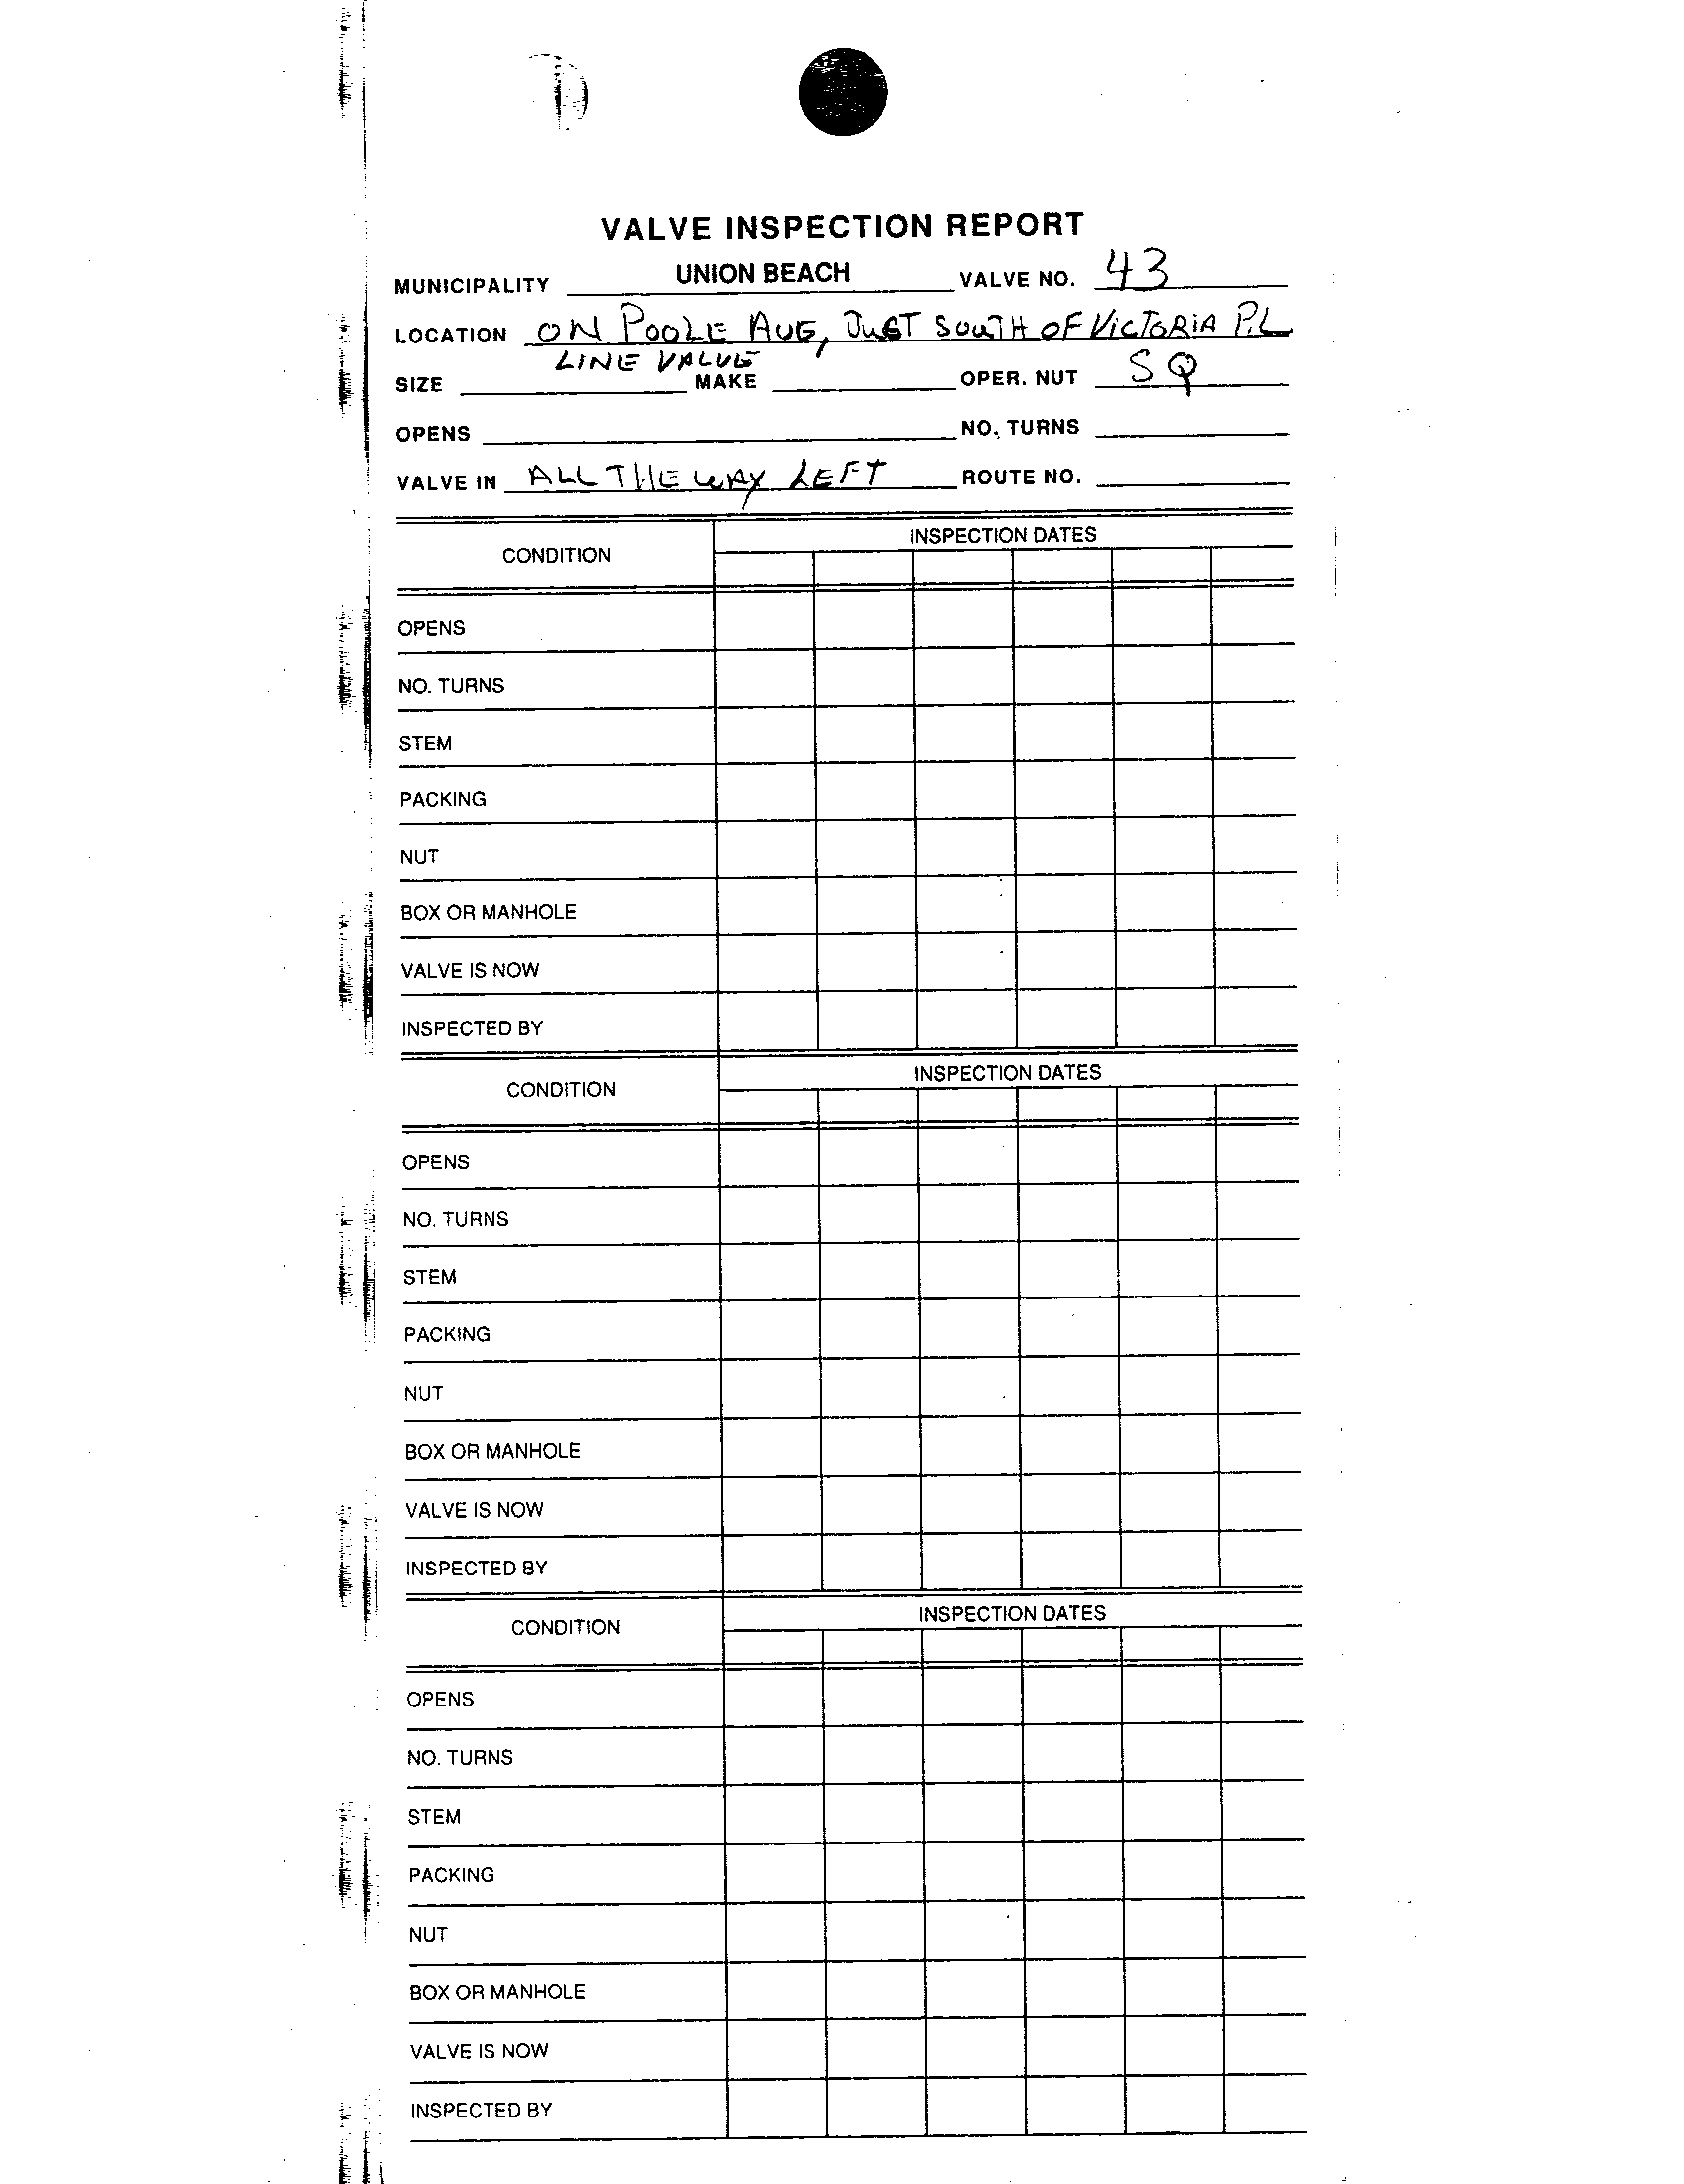 VALVE INSPECTION REPORT
MUNICIPALITY UNION BEACH VALVE NO. 43
LOCATION ON POOLE AVE, JUST SOUTH OF VICTORIA PL
LINE VALVE
SIZE MAKE OPER. NUT SQ
OPENS NO. TURNS
VALVE IN ALL THE WAY LEFT ROUTE NO.
CONDITION INSPECTION DATES
OPENS
NO. TURNS
STEM
PACKING
NUT
BOX OR MANHOLE
VALVE IS NOW
INSPECTED BY
CONDITION INSPECTION DATES
OPENS
NO. TURNS
STEM
PACKING
NUT
BOX OR MANHOLE
VALVE IS NOW
INSPECTED BY
CONDITION INSPECTION DATES
OPENS
NO. TURNS
STEM
PACKING
NUT
BOX OR MANHOLE
VALVE IS NOW
INSPECTED BY